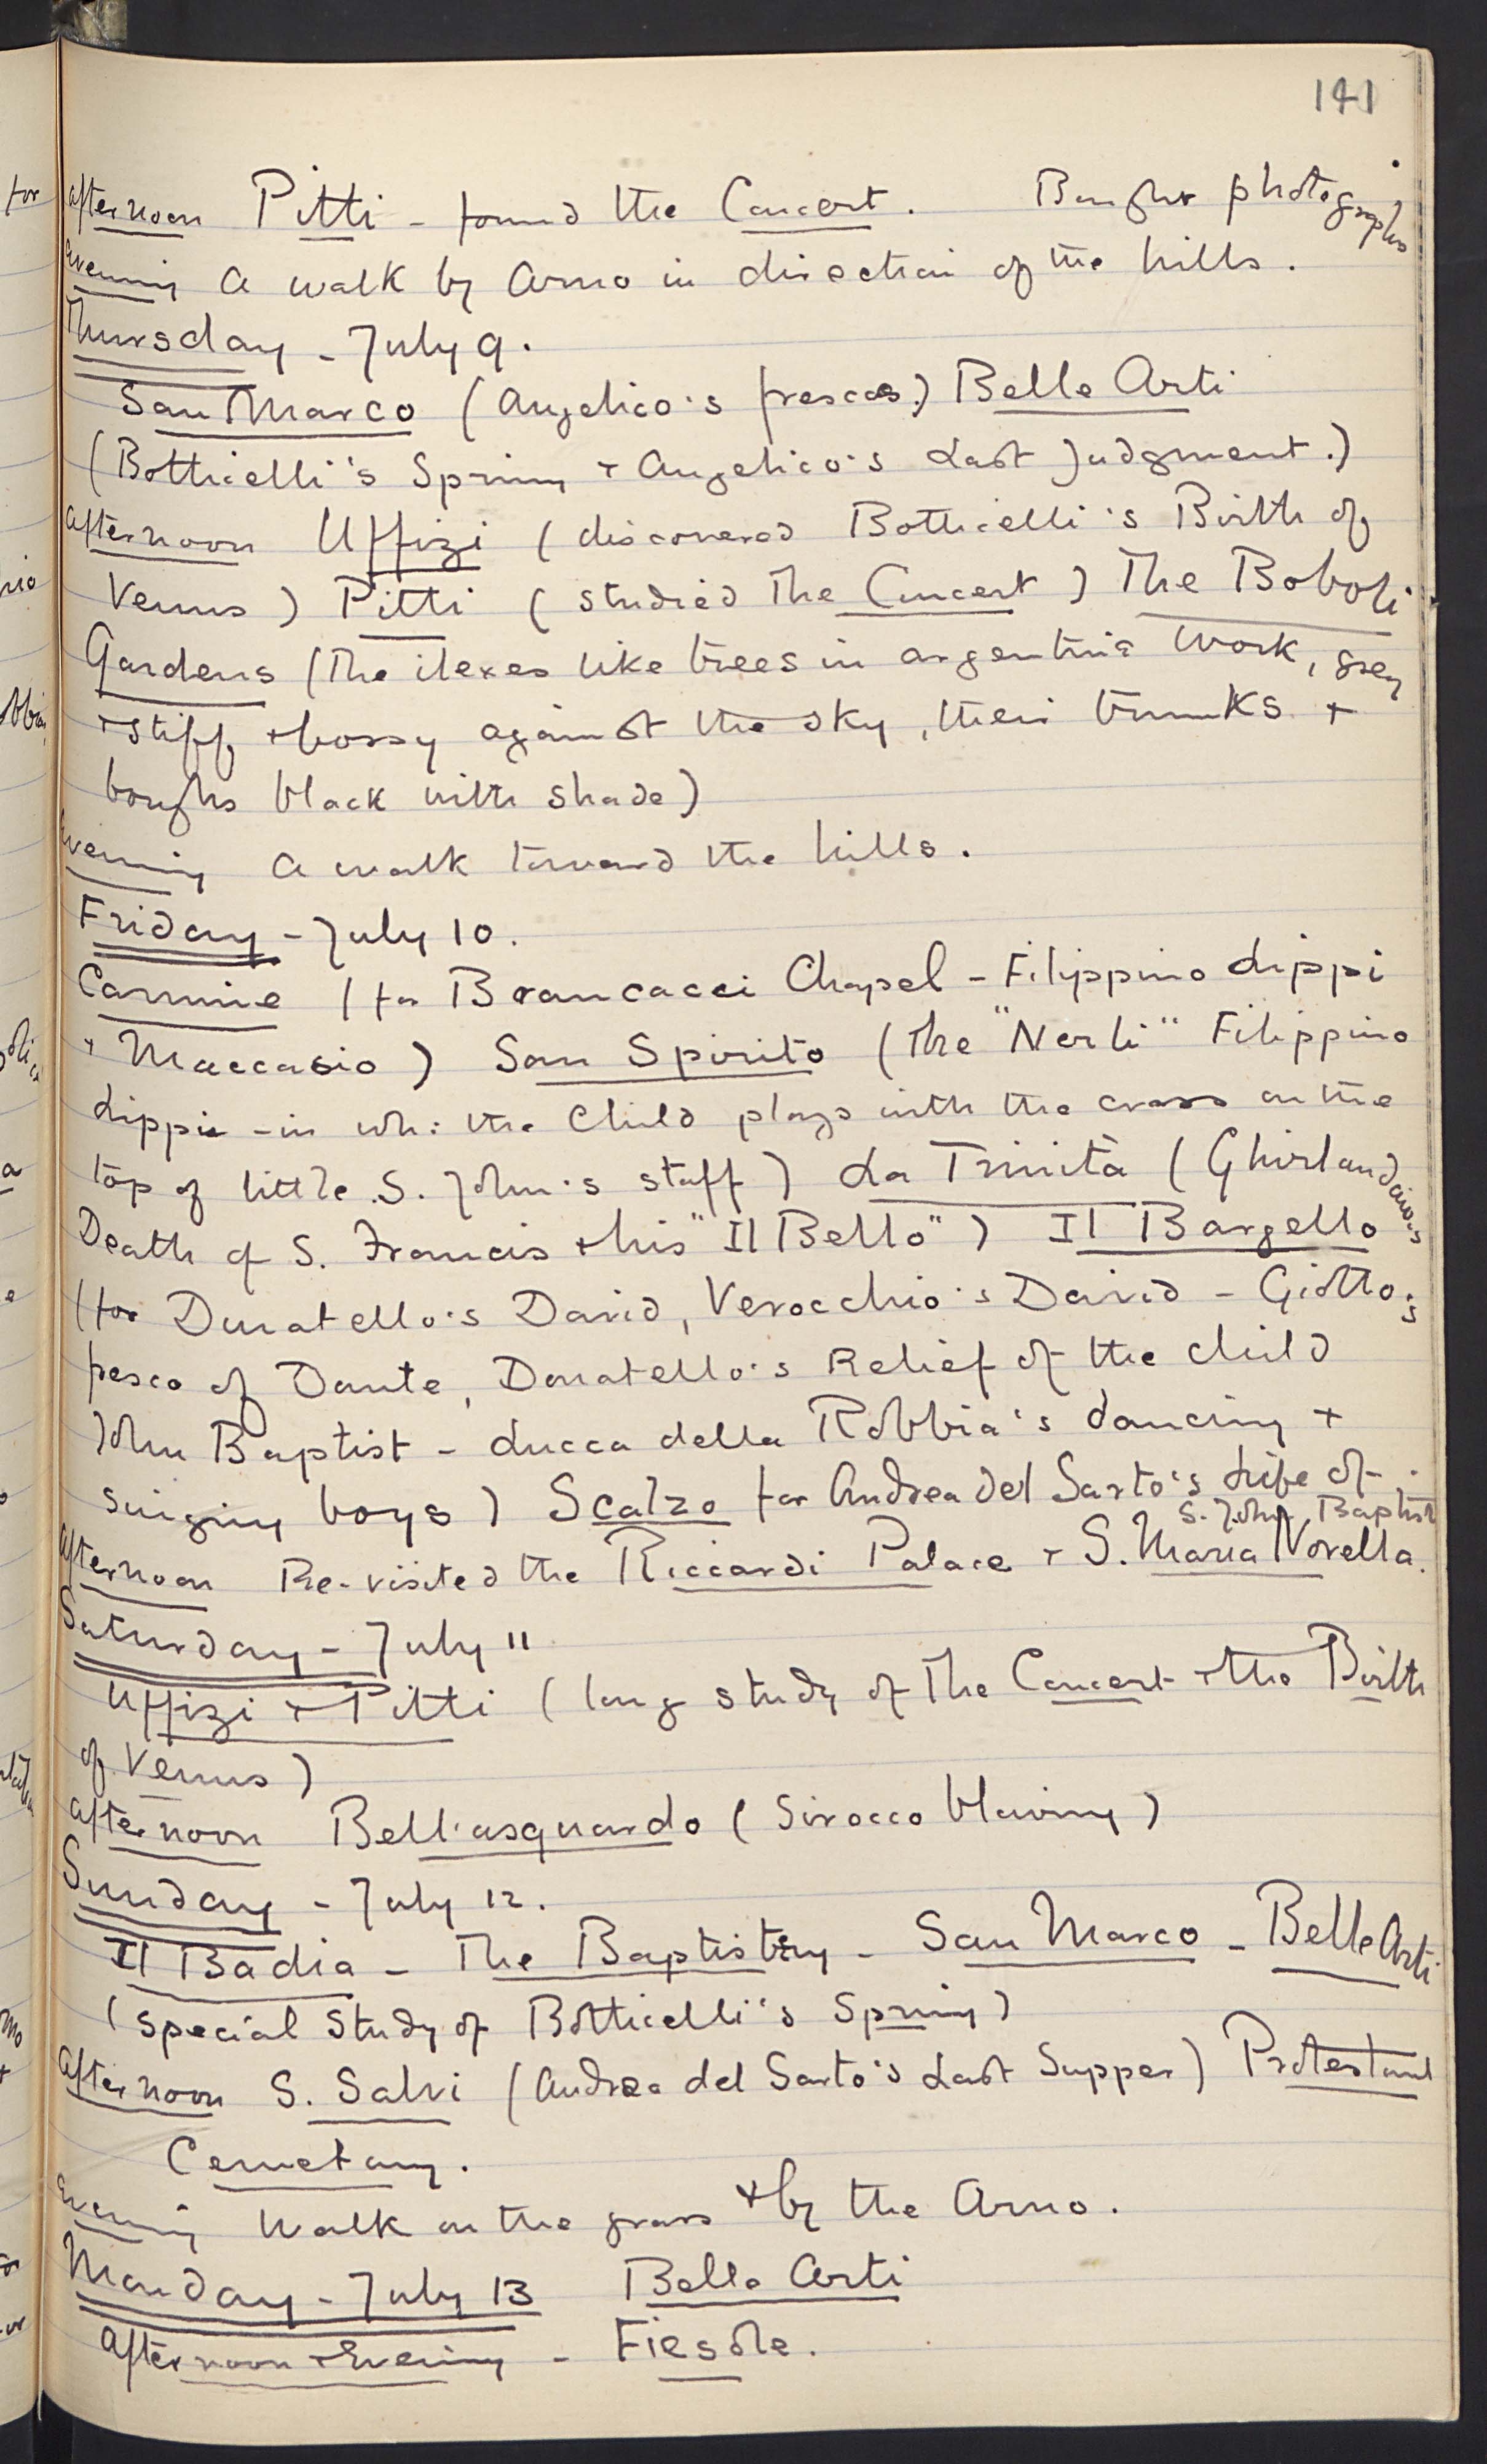 141
for afternoon Pitti - found the Concert. Bought photographs
evening A walk by Arno in direction of the hills.
Thursday - July 9.
San Marco (Angelico's frescoes.) Belle Arti
(Botticelli's Spring + Angelico's Last Judgment.)
afternoon Uffizi (discovered Botticelli's Birth of
Venus) Pitti (studied The Concert) The Boboli
Gardens (The ilexes like trees in argentina work, grey
+ stiff + bossy against the sky, their trunks +
boughs black with shade)
evening A walk toward the hills.
Friday - July 10.
Carmine (for Brancacci Chapel - Filippino Lippi
+ Maccasio) San Spirito (the "Nerli" Filippino
Lippi - in wh: the Child plays with the cross on the
top of little S. John's staff) La Trinita (Ghirlandaio's
Death of S. Francis + his "Il Bello") Il Bargello
(for Donatello's David, Verocchio's David - Giotto's
fresco of Dante, Donatello's Relief of the child
John Baptist - Lucca della Robbia's dancing +
singing boys) Scalzo for Andrea del Sarto's Life of
S. John Baptist
afternoon Re-visited the Riccardi Palace + S. Maria Novella.
Saturday - July 11
Uffizi + Pitti (long study of The Concert + the Birth
of Venus)
afternoon Bell'asguardo (Sirocco blowing)
Sunday - July 12.
Il Badia - The Baptistry - San Marco - Belle Arti
(special study of Botticelli's Spring)
afternoon S. Salvi (Andrea del Sarto's Last Supper) Protestant
Cemetary.
evening Walk on the grass + by the Arno.
Monday - July 13 Belle Arti
Afternoon + Evening - Fiesole.